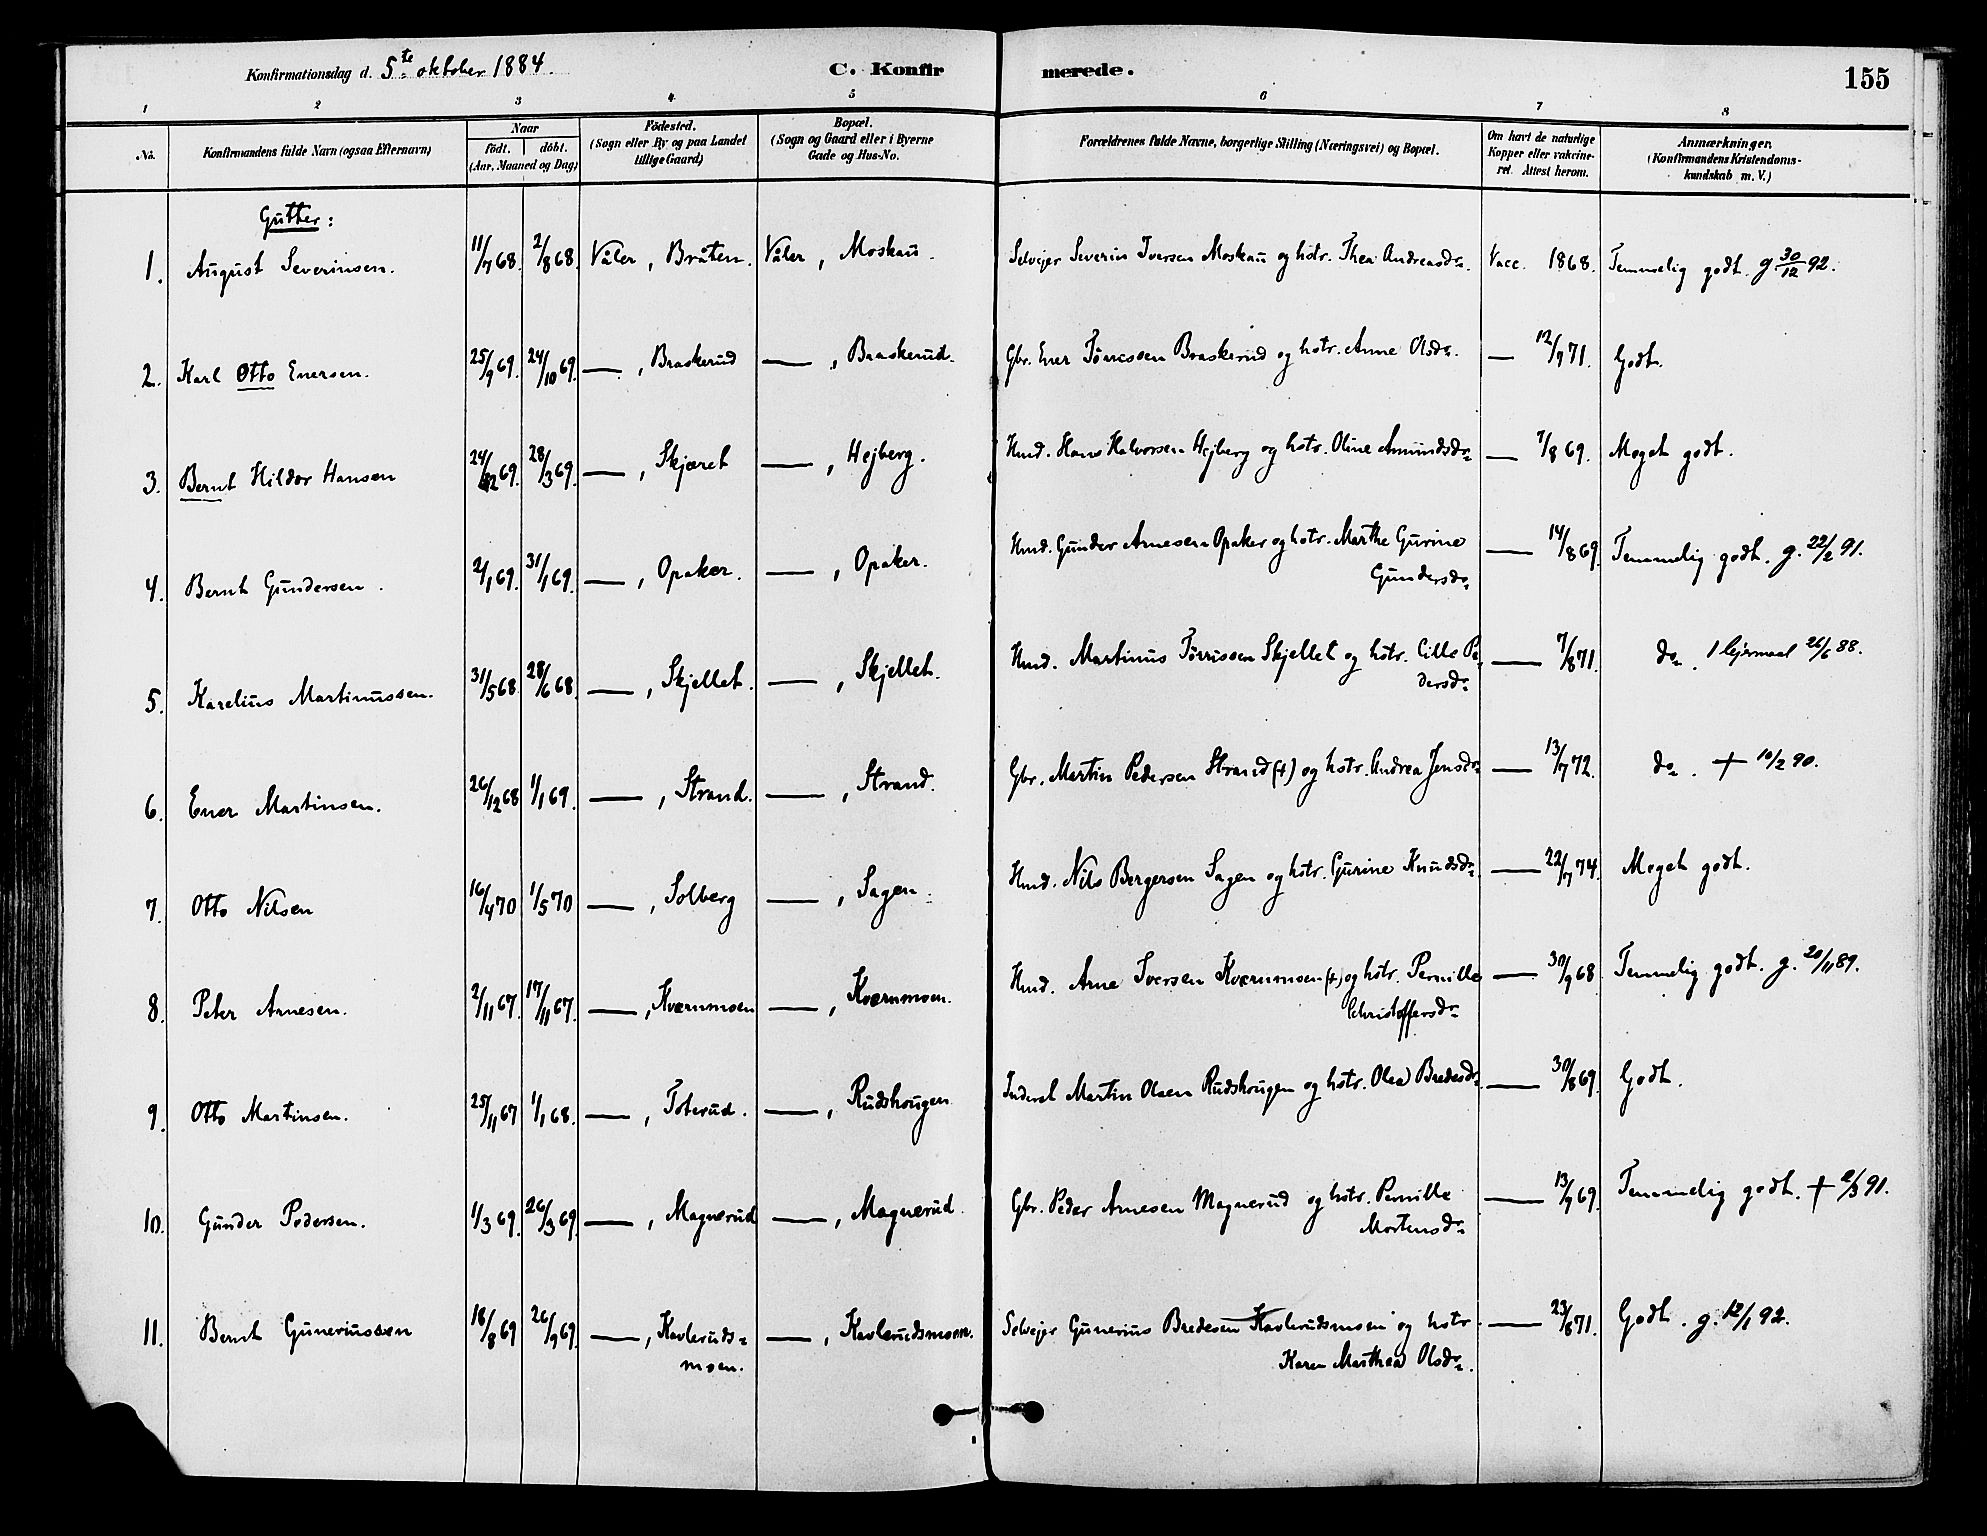 Konfirmationsdag d. 5te oktober 1884. C. Konfirmerede. 155
1 2 3 4 5 6 7 8
No. Konfirmandens fulde Navn (ogsaa Efternavn) Naar født. døbt. (Aar, Maaned og Dag) Fødested. (Sogn eller By og paa Landet tillige Gaard) Bopæl. (Sogn og Gaard eller i Byerne Gade og Hus-No. Forældrenes fulde Navne, borgerlige Stilling (Næringsvei) og Bopæl. Om havt de naturlige Kopper eller vakcineret. Attest herom. Anmærkninger. (Konfirmandens Kristendomskundskab m. V.)
Gutter:
1. August Severinsen. 11/7 68. 2/8 68. Våler, Bråten. Våler, Moskau. Selvejer Severin Iversen Moskau og hstr. Thea Andreasdr. Vacc. 1868. Temmelig godt. g 30/12 92.
2. Karl Otto Enersen. 25/9 69. 24/10 69. —, Braskerud —, Braskerud. Gbr. Ener Tørresen Braskerud og hstr. Anne Olsdr. — 12/9 71. Godt.
3. Bernt Hildor Hansen 24/2 69. 28/3 69. —, Skjæret —, Hejberg. Hmd. Hans Halvorsen Hejberg og hstr. Oline Amundsdr. — 7/8 69. Meget godt.
4. Bernt Gundersen. 2/1 69. 31/1 69. —, Opaker. —, Opaker. Hmd. Gunder Arnesen Opaker og hstr. Marthe Gurine — 14/8 69. Temmelig godt. g. 22/2 91.
Gundersdr.
5. Karelius Martinussen. 31/5 68. 28/6 68. —, Skjellet. —, Skjellet. Hmd. Martinus Tørrissen Skjellet og hstr. Cille Pe- — 7/8 71. do. 1 lejermaal 26/6 88.
dersdr.
6. Ener Martinsen. 26/12 68 1/1 69. —, Strand. —, Strand. Gbr. Martin Pedersen Strand (+) og hstr. Andrea Jensdr. — 13/7 72. do. + 10/2 90.
7. Otto Nilsen 16/4 70 1/5 70 —, Solberg —, Sagen. Hmd. Nils Bergersen Sagen og hstr. Gurine Knudsdr. — 22/7 74. Meget godt.
8. Peter Arnesen. 2/11 67. 17/11 67. —, Kværnmoen —, Kværnmoen. Hmd. Arne Iversen Kværnmoen (+) og hstr. Pernille — 30/9 68 Temmelig godt. g. 20/11 89.
Christoffersdr.
9. Otto Martinsen. 25/11 67 1/1 68. —, Toterud. —, Rudshougen. Martin Olsen Rudshougen og hstr. Olea Bredesdr. — 30/8 69. Godt.
10. Gunder Pedersen. 1/3 69. 26/3 69. —, Magnerud —, Magnerud. Gbr. Peder Arnesen Magnerud og hstr. Pernille — 13/9 69. Temmelig godt. + 2/3 91.
Mortensdr.
11. Bernt Guneriussen 18/8 69 26/9 69. —, Kavleruds- —, Kavlerudsmoen. Selvejer Gunerius Bredesen Kavlerudsmoen og hstr. — 23/6 71. Godt. g. 12/1 92.
moen. Karen Marthea Olsdr.